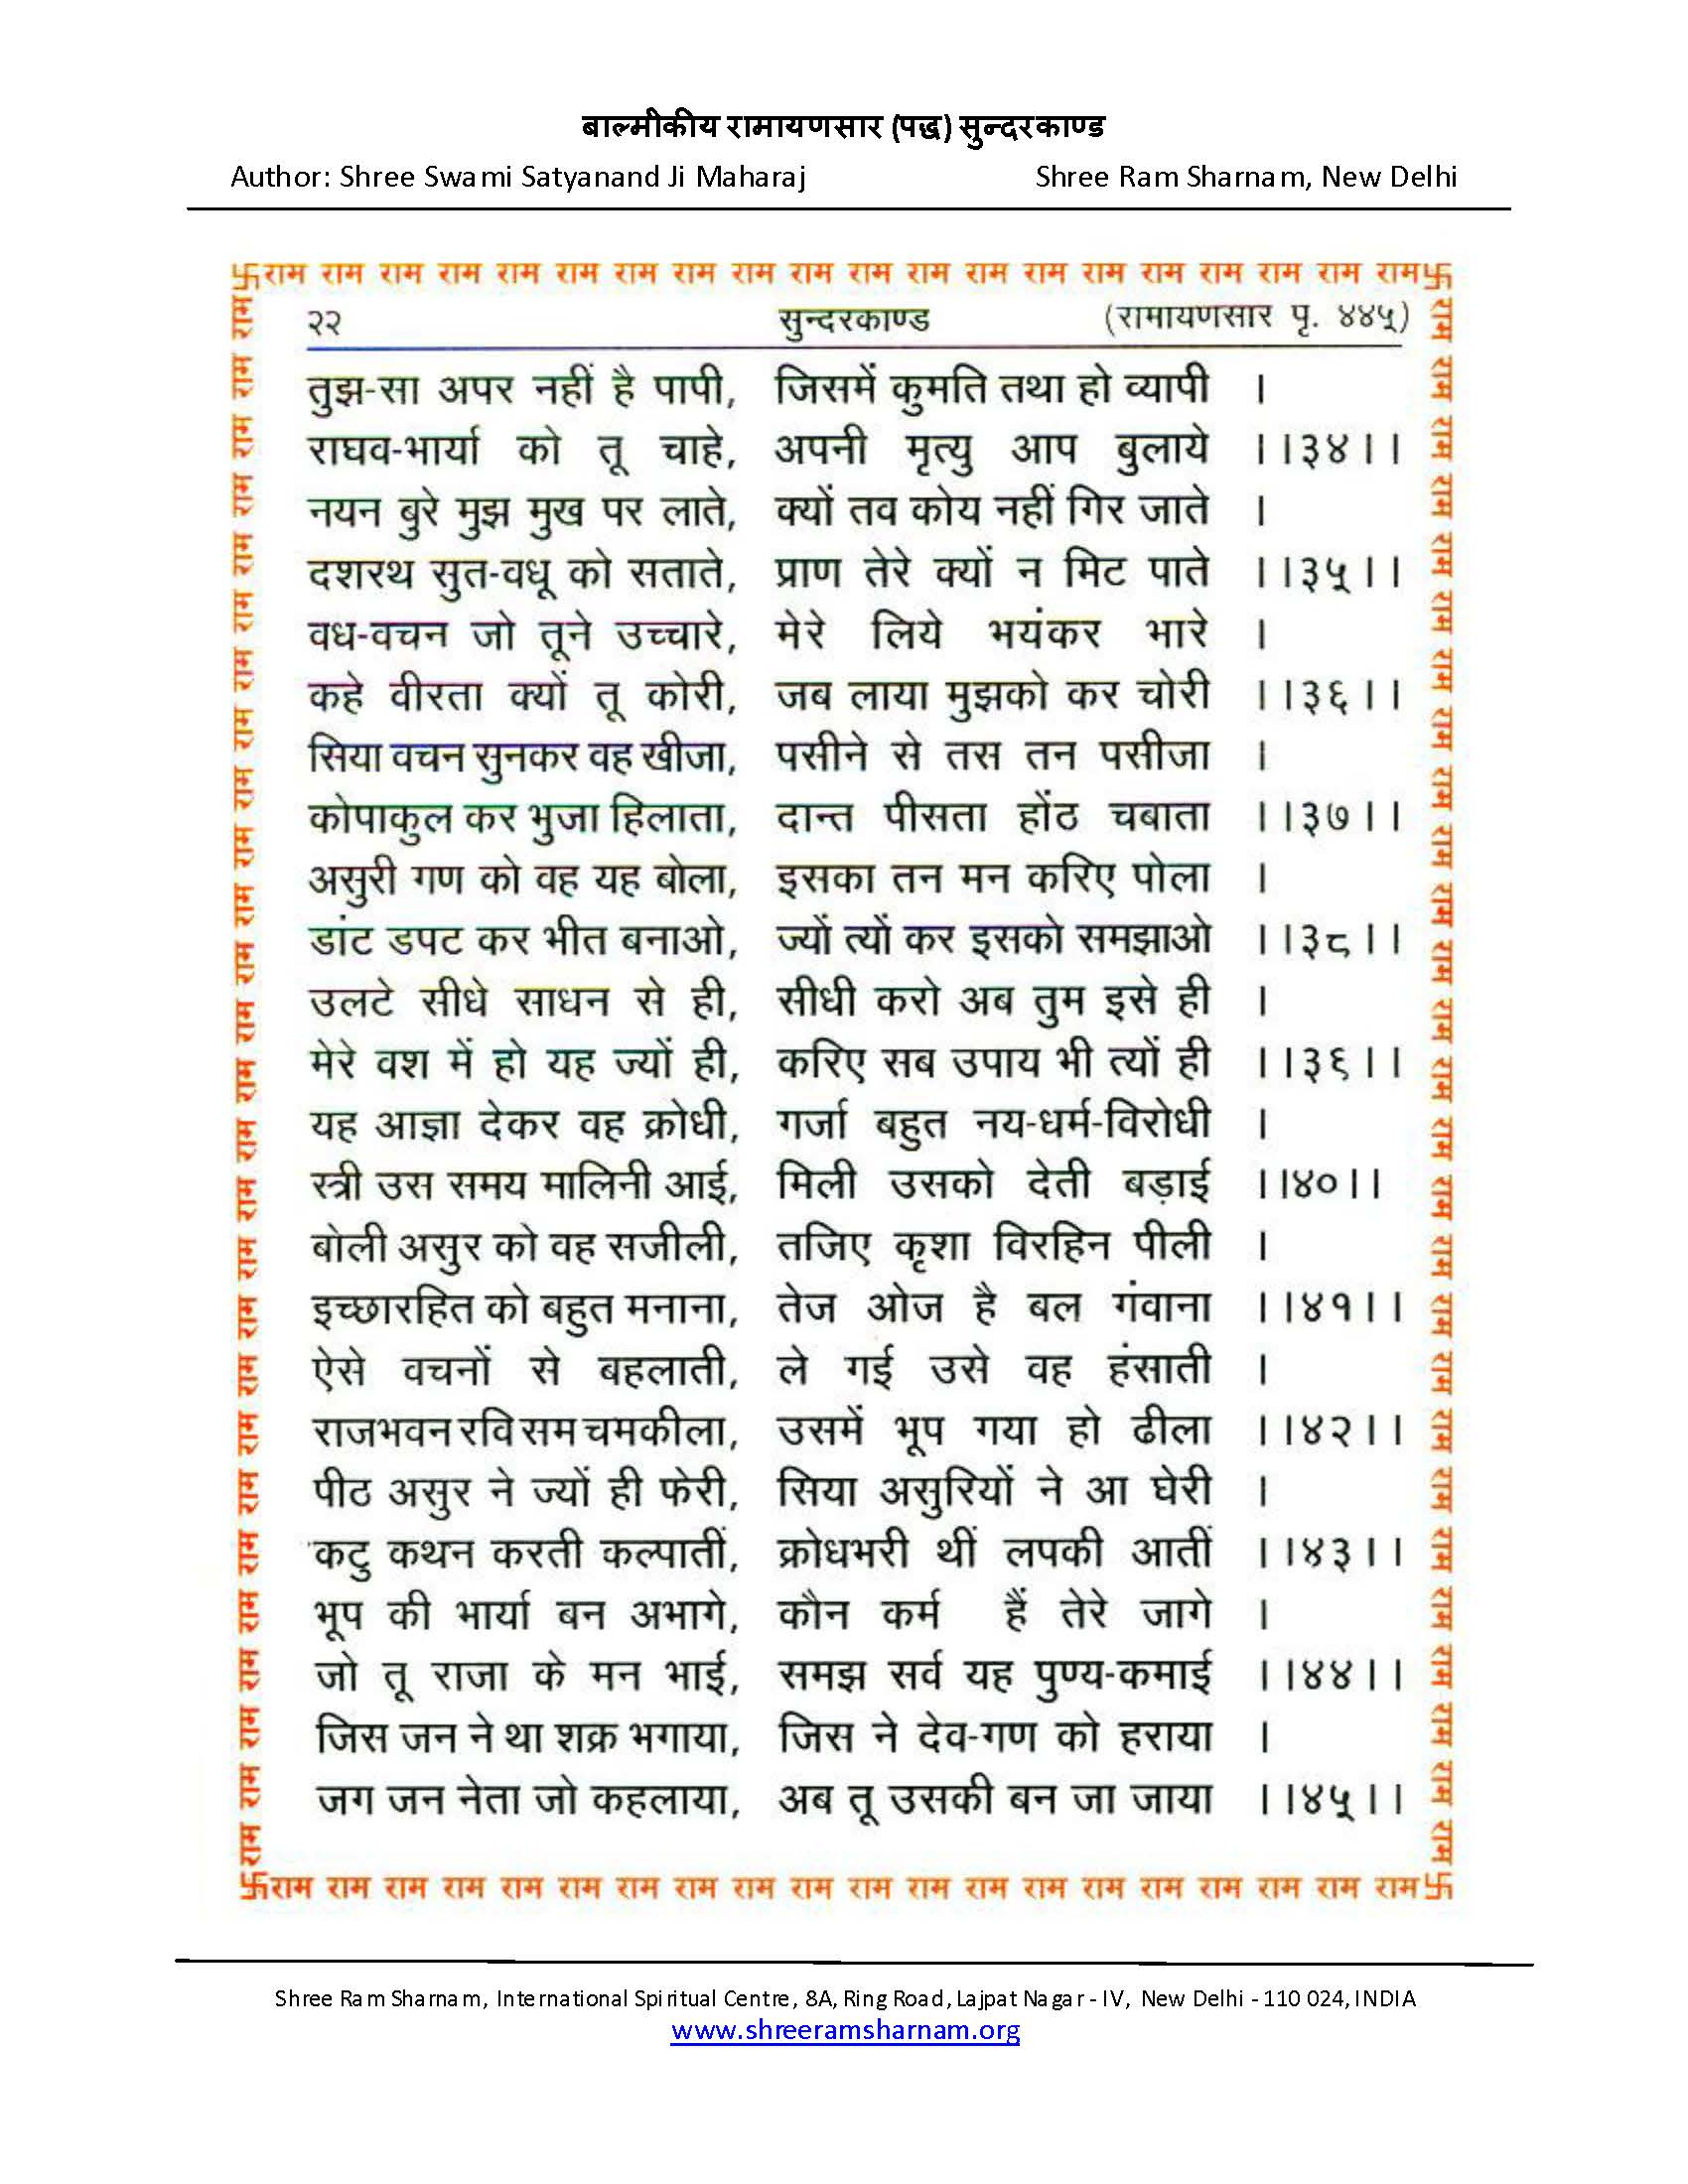 बाल्मीकीय रामायणसार (पद्ध) सुन्दरकाण्ड
Author: Shree Swami Satyanand Ji Maharaj Shree Ram Sharnam, New Delhi
卐राम राम राम राम राम राम राम राम राम राम राम राम राम राम राम राम राम राम राम राम卐
२२ सुन्दरकाण्ड (रामायणसार पृ. ४४५)
तुझ-सा अपर नहीं है पापी, जिसमें कुमति तथा हो व्यापी ।
राघव-भार्या को तू चाहे, अपनी मृत्यु आप बुलाये ।।३४।।
नयन बुरे मुझ मुख पर लाते, क्यों तव कोय नहीं गिर जाते ।
दशरथ सुत-वधू को सताते, प्राण तेरे क्यों न मिट पाते ।।३५।।
वध-वचन जो तूने उच्चारे, मेरे लिये भयंकर भारे ।
कहे वीरता क्यों तू कोरी, जब लाया मुझको कर चोरी ।।३६।।
सिया वचन सुनकर वह खीजा, पसीने से तस तन पसीजा ।
कोपाकुल कर भुजा हिलाता, दान्त पीसता होंठ चबाता ।।३७।।
असुरी गण को वह यह बोला, इसका तन मन करिए पोला ।
डांट डपट कर भीत बनाओ, ज्यों त्यों कर इसको समझाओ ।।३८।।
उलटे सीधे साधन से ही, सीधी करो अब तुम इसे ही ।
मेरे वश में हो यह ज्यों ही, करिए सब उपाय भी त्यों ही ।।३९।।
यह आज्ञा देकर वह क्रोधी, गर्जा बहुत नय-धर्म-विरोधी ।
स्त्री उस समय मालिनी आई, मिली उसको देती बड़ाई ।।४०।।
बोली असुर को वह सजीली, तजिए कृशा विरहिन पीली ।
इच्छारहित को बहुत मनाना, तेज ओज है बल गंवाना ।।४१।।
ऐसे वचनों से बहलाती, ले गई उसे वह हंसाती ।
राजभवन रवि सम चमकीला, उसमें भूप गया हो ढीला ।।४२।।
पीठ असुर ने ज्यों ही फेरी, सिया असुरियों ने आ घेरी ।
कटु कथन करती कल्पातीं, क्रोधभरी थीं लपकी आतीं ।।४३।।
भूप की भार्या बन अभागे, कौन कर्म हैं तेरे जागे ।
जो तू राजा के मन भाई, समझ सर्व यह पुण्य-कमाई ।।४४।।
जिस जन ने था शक्र भगाया, जिस ने देव-गण को हराया ।
जग जन नेता जो कहलाया, अब तू उसकी बन जा जाया ।।४५।।
卐राम राम राम राम राम राम राम राम राम राम राम राम राम राम राम राम राम राम राम राम卐
Shree Ram Sharnam, International Spiritual Centre, 8A, Ring Road, Lajpat Nagar - IV, New Delhi - 110 024, INDIA
www.shreeramsharnam.org